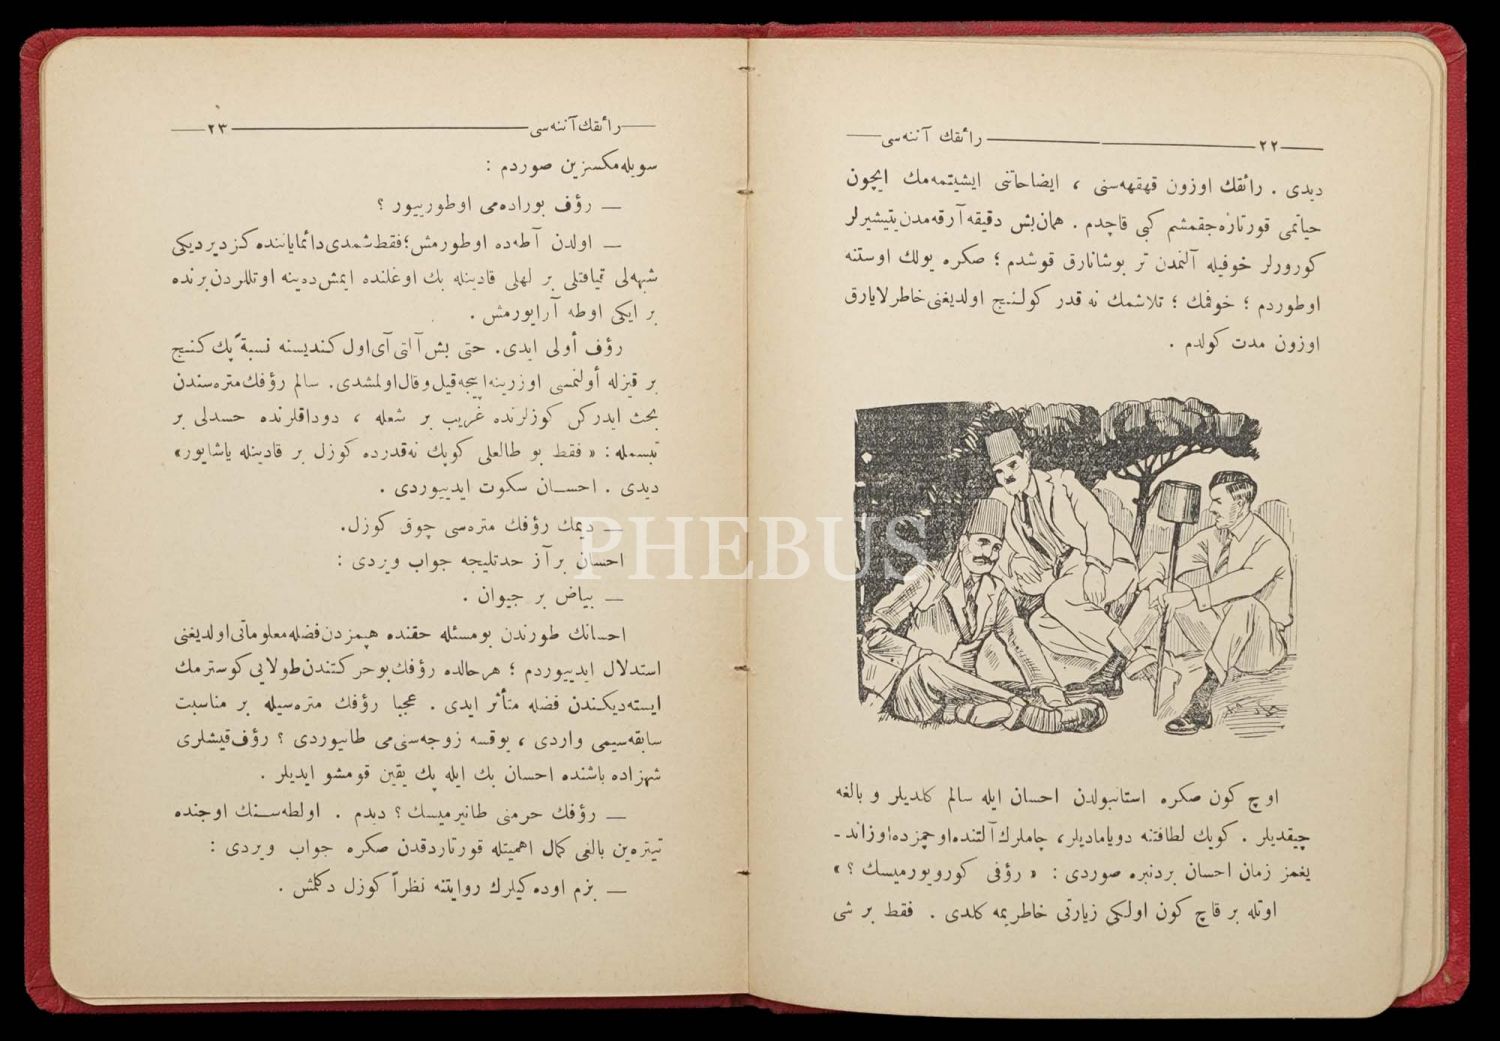 ٢٢ رائقك آننه‌سی
دیدی . رائقك اوزون قهقهه‌سنی ، ایضاحاتنی ایشیتمه‌مك ایچون
حیاتمی قورتاره‌جقمشم كبی قاچدم . همان بش دقیقه آرقه‌مدن یتیشیرلر
كورورلر خوفیله آلنمدن تر بوشانارق قوشدم ؛ صكره یولك اوستنه
اوطوردم ؛ خوفمك ؛ تلاشمك نه قدر كولنج اولدیغنی خاطرلایارق
اوزون مدت كولدم .
اوچ كون صكره استانبولدن احسان ایله سالم كلدیلر و بالغه
چیقدیلر . كویك لطافتنه دویامادیلر، چاملرك آلتنده اوچمزده اوزاند-
یغمز زمان احسان بردنبره صوردی : « رؤفی كورویورمیسك ؟ »
اوتله بر قاچ كون اولكی زیارتی خاطریمه كلدی . فقط بر شی
رائقك آننه‌سی ٢٣
سویله‌مكسزین صوردم :
— رؤف بوراده‌می اوطورییور ؟
— اولدن آطه‌ده اوطورمش؛ فقط شمدی دائما یاننده كزدیردیكی
شبهه‌لی قیافتلی بر لهلی قادینله بك اوغلنده ایمش ده‌ینه اوتللردن برنده
بر ایكی اوطه آرایورمش .
رؤف أولی ایدی. حتی بش آلتی آی اول كندیسنه نسبةً پك كنج
بر قیزله أولنمسی اوزرینه ایجه قیل و قال اولمشدی. سالم رؤفك متره‌سندن
بحث ایدركن كوزلرنده غریب بر شعله ، دوداقلرنده حسدلی بر
تبسمله : « فقط بو طالعلی كوپك نه‌قدرده كوزل بر قادینله یاشایور»
دیدی . احسان سكوت ایدییوردی .
— دیمك رؤفك متره‌سی چوق كوزل.
احسان بر آز حدتلیجه جواب ویردی :
— بیاض بر حیوان .
احسانك طورندن بو مسئله حقنده هپمزدن فضله معلوماتی اولدیغنی
استدلال ایدییوردم ؛ هر حالده رؤفك بو حركتندن طولایی كوسترمك
ایسته‌دیكندن فضله متأثر ایدی . عجبا رؤفك متره‌سیله بر مناسبت
سابقه‌سیمی واردی ، یوقسه زوجه‌سنی‌می طانییوردی ؟ رؤف قیشلری
شهزاده باشنده احسان بك ایله پك یقین قومشو ایدیلر .
— رؤفك حرمنی طانیرمیسك ؟ دیدم . اولطه‌سنك اوجنده
تیتره‌ین بالغی كمال اهمیتله قورتاردقدن صكره جواب ویردی :
— بزم اوده‌كیلرك روایتنه نظراً كوزل دكلمش .
PHEBUS